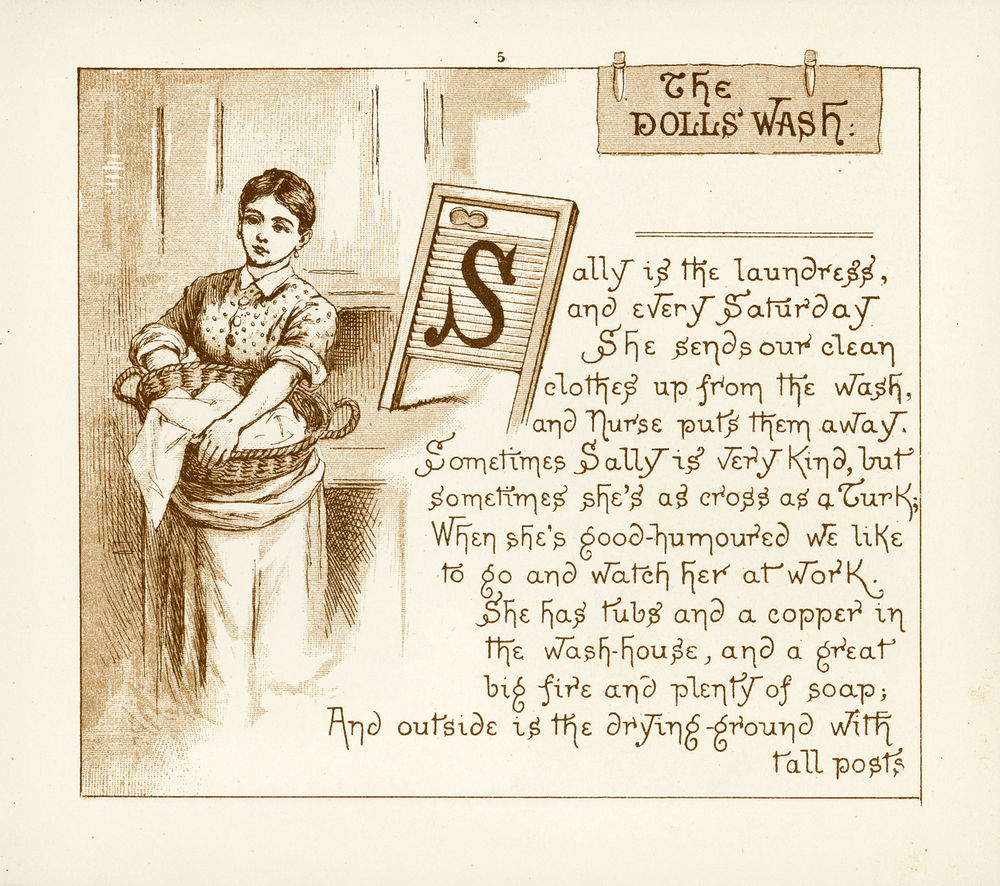 5
The
DOLLS' WASH:
Sally is the laundress,
and every Saturday
She sends our clean
clothes up from the wash,
and Nurse puts them away.
Sometimes Sally is very kind, but
sometimes she's as cross as a Turk;
When she's good-humoured we like
to go and watch her at work.
She has tubs and a copper in
the wash-house, and a great
big fire and plenty of soap;
And outside is the drying-ground with
tall posts